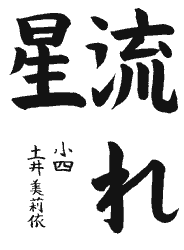 流れ
星
小四
土井美莉依